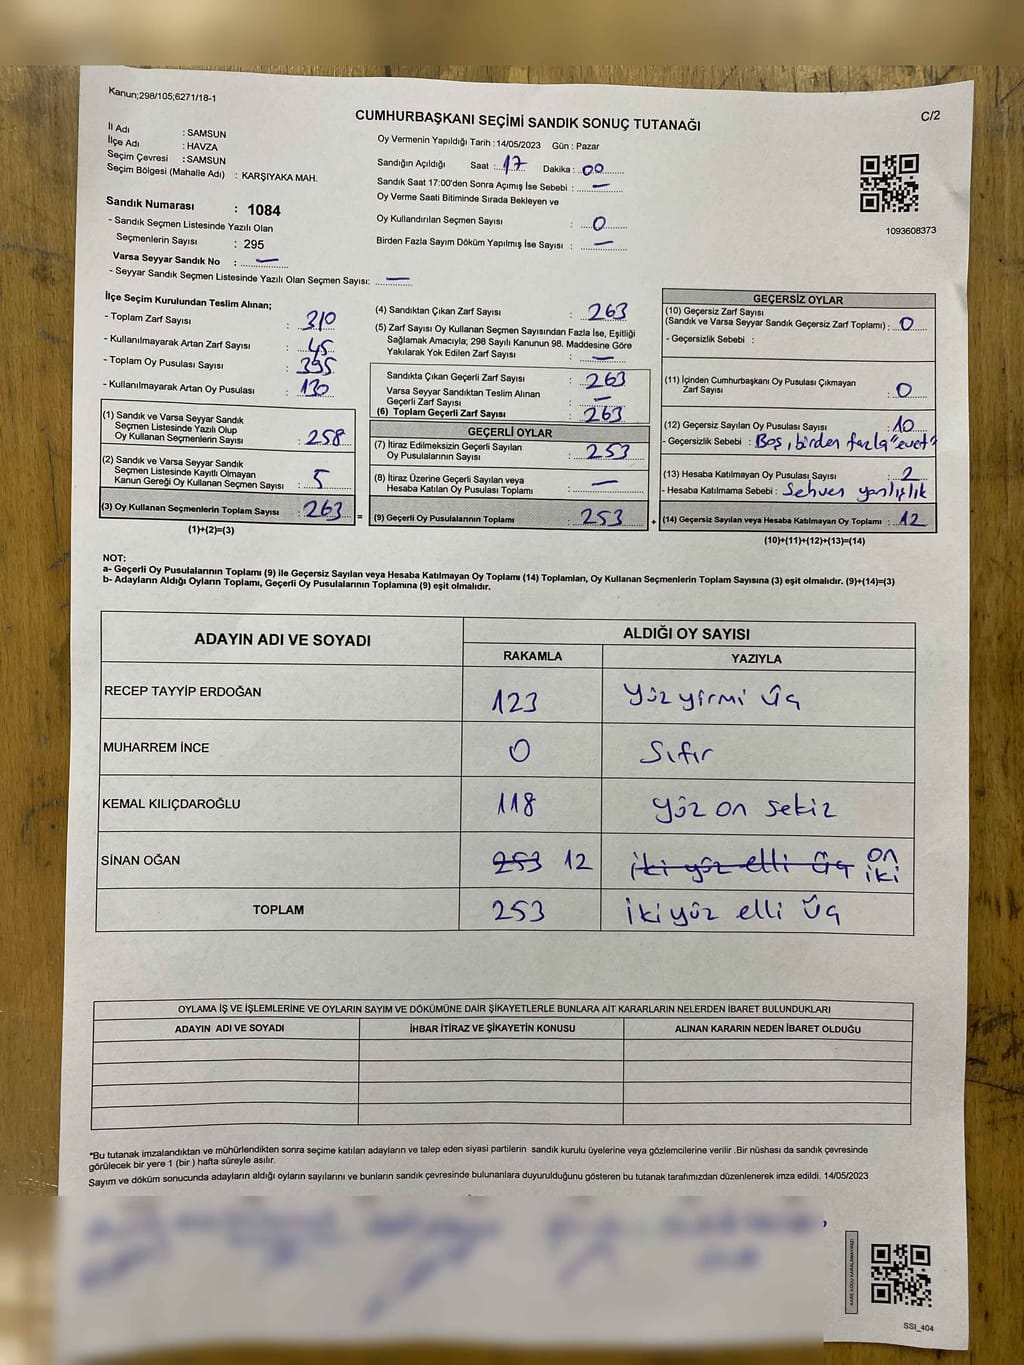 Kanun;298/105;6271/18-1
C/2
CUMHURBAŞKANI SEÇİMİ SANDIK SONUÇ TUTANAĞI
İl Adı : SAMSUN
İlçe Adı : HAVZA
Seçim Çevresi : SAMSUN
Seçim Bölgesi (Mahalle Adı) : KARŞIYAKA MAH.
Sandık Numarası : 1084
- Sandık Seçmen Listesinde Yazılı Olan
Seçmenlerin Sayısı : 295
Varsa Seyyar Sandık No : —
- Seyyar Sandık Seçmen Listesinde Yazılı Olan Seçmen Sayısı: —
Oy Vermenin Yapıldığı Tarih :14/05/2023 Gün : Pazar
Sandığın Açıldığı Saat : 17 Dakika : 00
Sandık Saat 17:00'den Sonra Açımış İse Sebebi : —
Oy Verme Saati Bitiminde Sırada Bekleyen ve
Oy Kullandırılan Seçmen Sayısı : 0
Birden Fazla Sayım Döküm Yapılmış İse Sayısı : —
1093608373
İlçe Seçim Kurulundan Teslim Alınan;
- Toplam Zarf Sayısı : 310
- Kullanılmayarak Artan Zarf Sayısı : 45
- Toplam Oy Pusulası Sayısı : 395
- Kullanılmayarak Artan Oy Pusulası : 130
(1) Sandık ve Varsa Seyyar Sandık
Seçmen Listesinde Yazılı Olup
Oy Kullanan Seçmenlerin Sayısı : 258
(2) Sandık ve Varsa Seyyar Sandık
Seçmen Listesinde Kayıtlı Olmayan
Kanun Gereği Oy Kullanan Seçmen Sayısı : 5
(3) Oy Kullanan Seçmenlerin Toplam Sayısı : 263 =
(1)+(2)=(3)
(4) Sandıktan Çıkan Zarf Sayısı : 263
(5) Zarf Sayısı Oy Kullanan Seçmen Sayısından Fazla İse, Eşitliği
Sağlamak Amacıyla; 298 Sayılı Kanunun 98. Maddesine Göre
Yakılarak Yok Edilen Zarf Sayısı : —
Sandıkta Çıkan Geçerli Zarf Sayısı : 263
Varsa Seyyar Sandıktan Teslim Alınan
Geçerli Zarf Sayısı : —
(6) Toplam Geçerli Zarf Sayısı : 263
GEÇERLİ OYLAR
(7) İtiraz Edilmeksizin Geçerli Sayılan
Oy Pusulalarının Sayısı : 253
(8) İtiraz Üzerine Geçerli Sayılan veya
Hesaba Katılan Oy Pusulası Toplamı : —
(9) Geçerli Oy Pusulalarının Toplamı : 253 +
GEÇERSİZ OYLAR
(10) Geçersiz Zarf Sayısı
(Sandık ve Varsa Seyyar Sandık Geçersiz Zarf Toplamı) : 0
- Geçersizlik Sebebi :
(11) İçinden Cumhurbaşkanı Oy Pusulası Çıkmayan
Zarf Sayısı : 0
(12) Geçersiz Sayılan Oy Pusulası Sayısı : 10
- Geçersizlik Sebebi : Boş, birden fazla "evet"
(13) Hesaba Katılmayan Oy Pusulası Sayısı : 2
- Hesaba Katılmama Sebebi : Sehven yanlışlık
(14) Geçersiz Sayılan veya Hesaba Katılmayan Oy Toplamı : 12
(10)+(11)+(12)+(13)=(14)
NOT:
a- Geçerli Oy Pusulalarının Toplamı (9) ile Geçersiz Sayılan veya Hesaba Katılmayan Oy Toplamı (14) Toplamları, Oy Kullanan Seçmenlerin Toplam Sayısına (3) eşit olmalıdır. (9)+(14)=(3)
b- Adayların Aldığı Oyların Toplamı, Geçerli Oy Pusulalarının Toplamına (9) eşit olmalıdır.
ADAYIN ADI VE SOYADI ALDIĞI OY SAYISI
RAKAMLA YAZIYLA
RECEP TAYYİP ERDOĞAN 123 Yüz yirmi üç
MUHARREM İNCE 0 Sıfır
KEMAL KILIÇDAROĞLU 118 Yüz on sekiz
SİNAN OĞAN 253 12 iki yüz elli üç on iki
TOPLAM 253 iki yüz elli üç
OYLAMA İŞ VE İŞLEMLERİNE VE OYLARIN SAYIM VE DÖKÜMÜNE DAİR ŞİKAYETLERLE BUNLARA AİT KARARLARIN NELERDEN İBARET BULUNDUKLARI
ADAYIN ADI VE SOYADI İHBAR İTİRAZ VE ŞİKAYETİN KONUSU ALINAN KARARIN NEDEN İBARET OLDUĞU
*Bu tutanak imzalandıktan ve mühürlendikten sonra seçime katılan adayların ve talep eden siyasi partilerin sandık kurulu üyelerine veya gözlemcilerine verilir .Bir nüshası da sandık çevresinde
görülecek bir yere 1 (bir ) hafta süreyle asılır.
Sayım ve döküm sonucunda adayların aldığı oyların sayılarını ve bunların sandık çevresinde bulunanlara duyurulduğunu gösteren bu tutanak tarafımızdan düzenlenerek imza edildi. 14/05/2023
KARE KODU KARALAMAYINIZ!
SSI_404